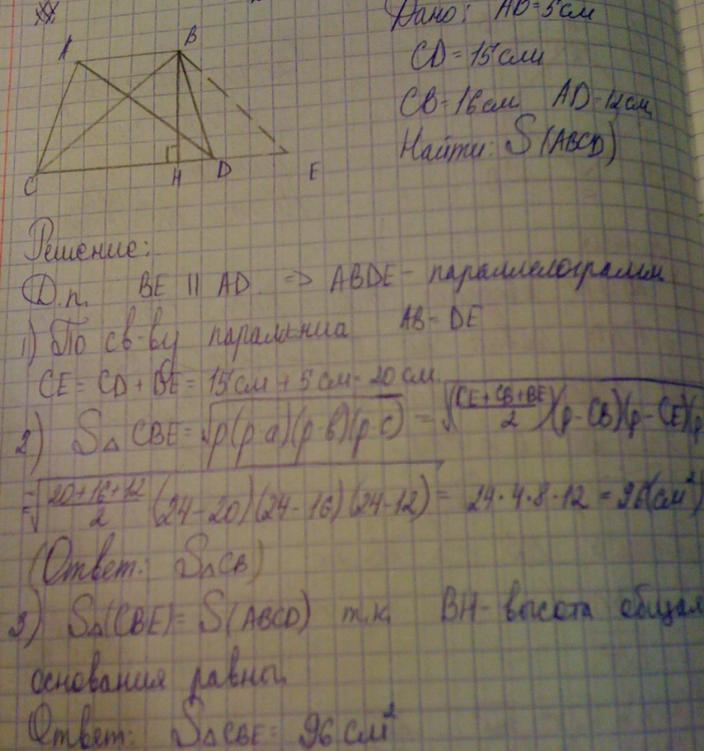 Дано: AB=5см
A
B
CD=15см
CB=16см AD=12см
Найти: S(ABCD)
C
H
D
E
Решение:
Д.п. BE || AD => ABDE - параллелограмм
1) По св-ву паралл-ма AB=DE
CE = CD + DE = 15см + 5см = 20см
2) S△ CBE = √p(p-a)(p-b)(p-c) = √(CE+CB+BE / 2)(p-CB)(p-CE)(p
=√20+16+12 / 2 (24-20)(24-16)(24-12) = 24·4·8·12 = 96(см²)
(Ответ: S△CB)
3) S△(CBE) = S(ABCD) т.к. BH - высота общая
основания равны
Ответ: S△CBE = 96 см²